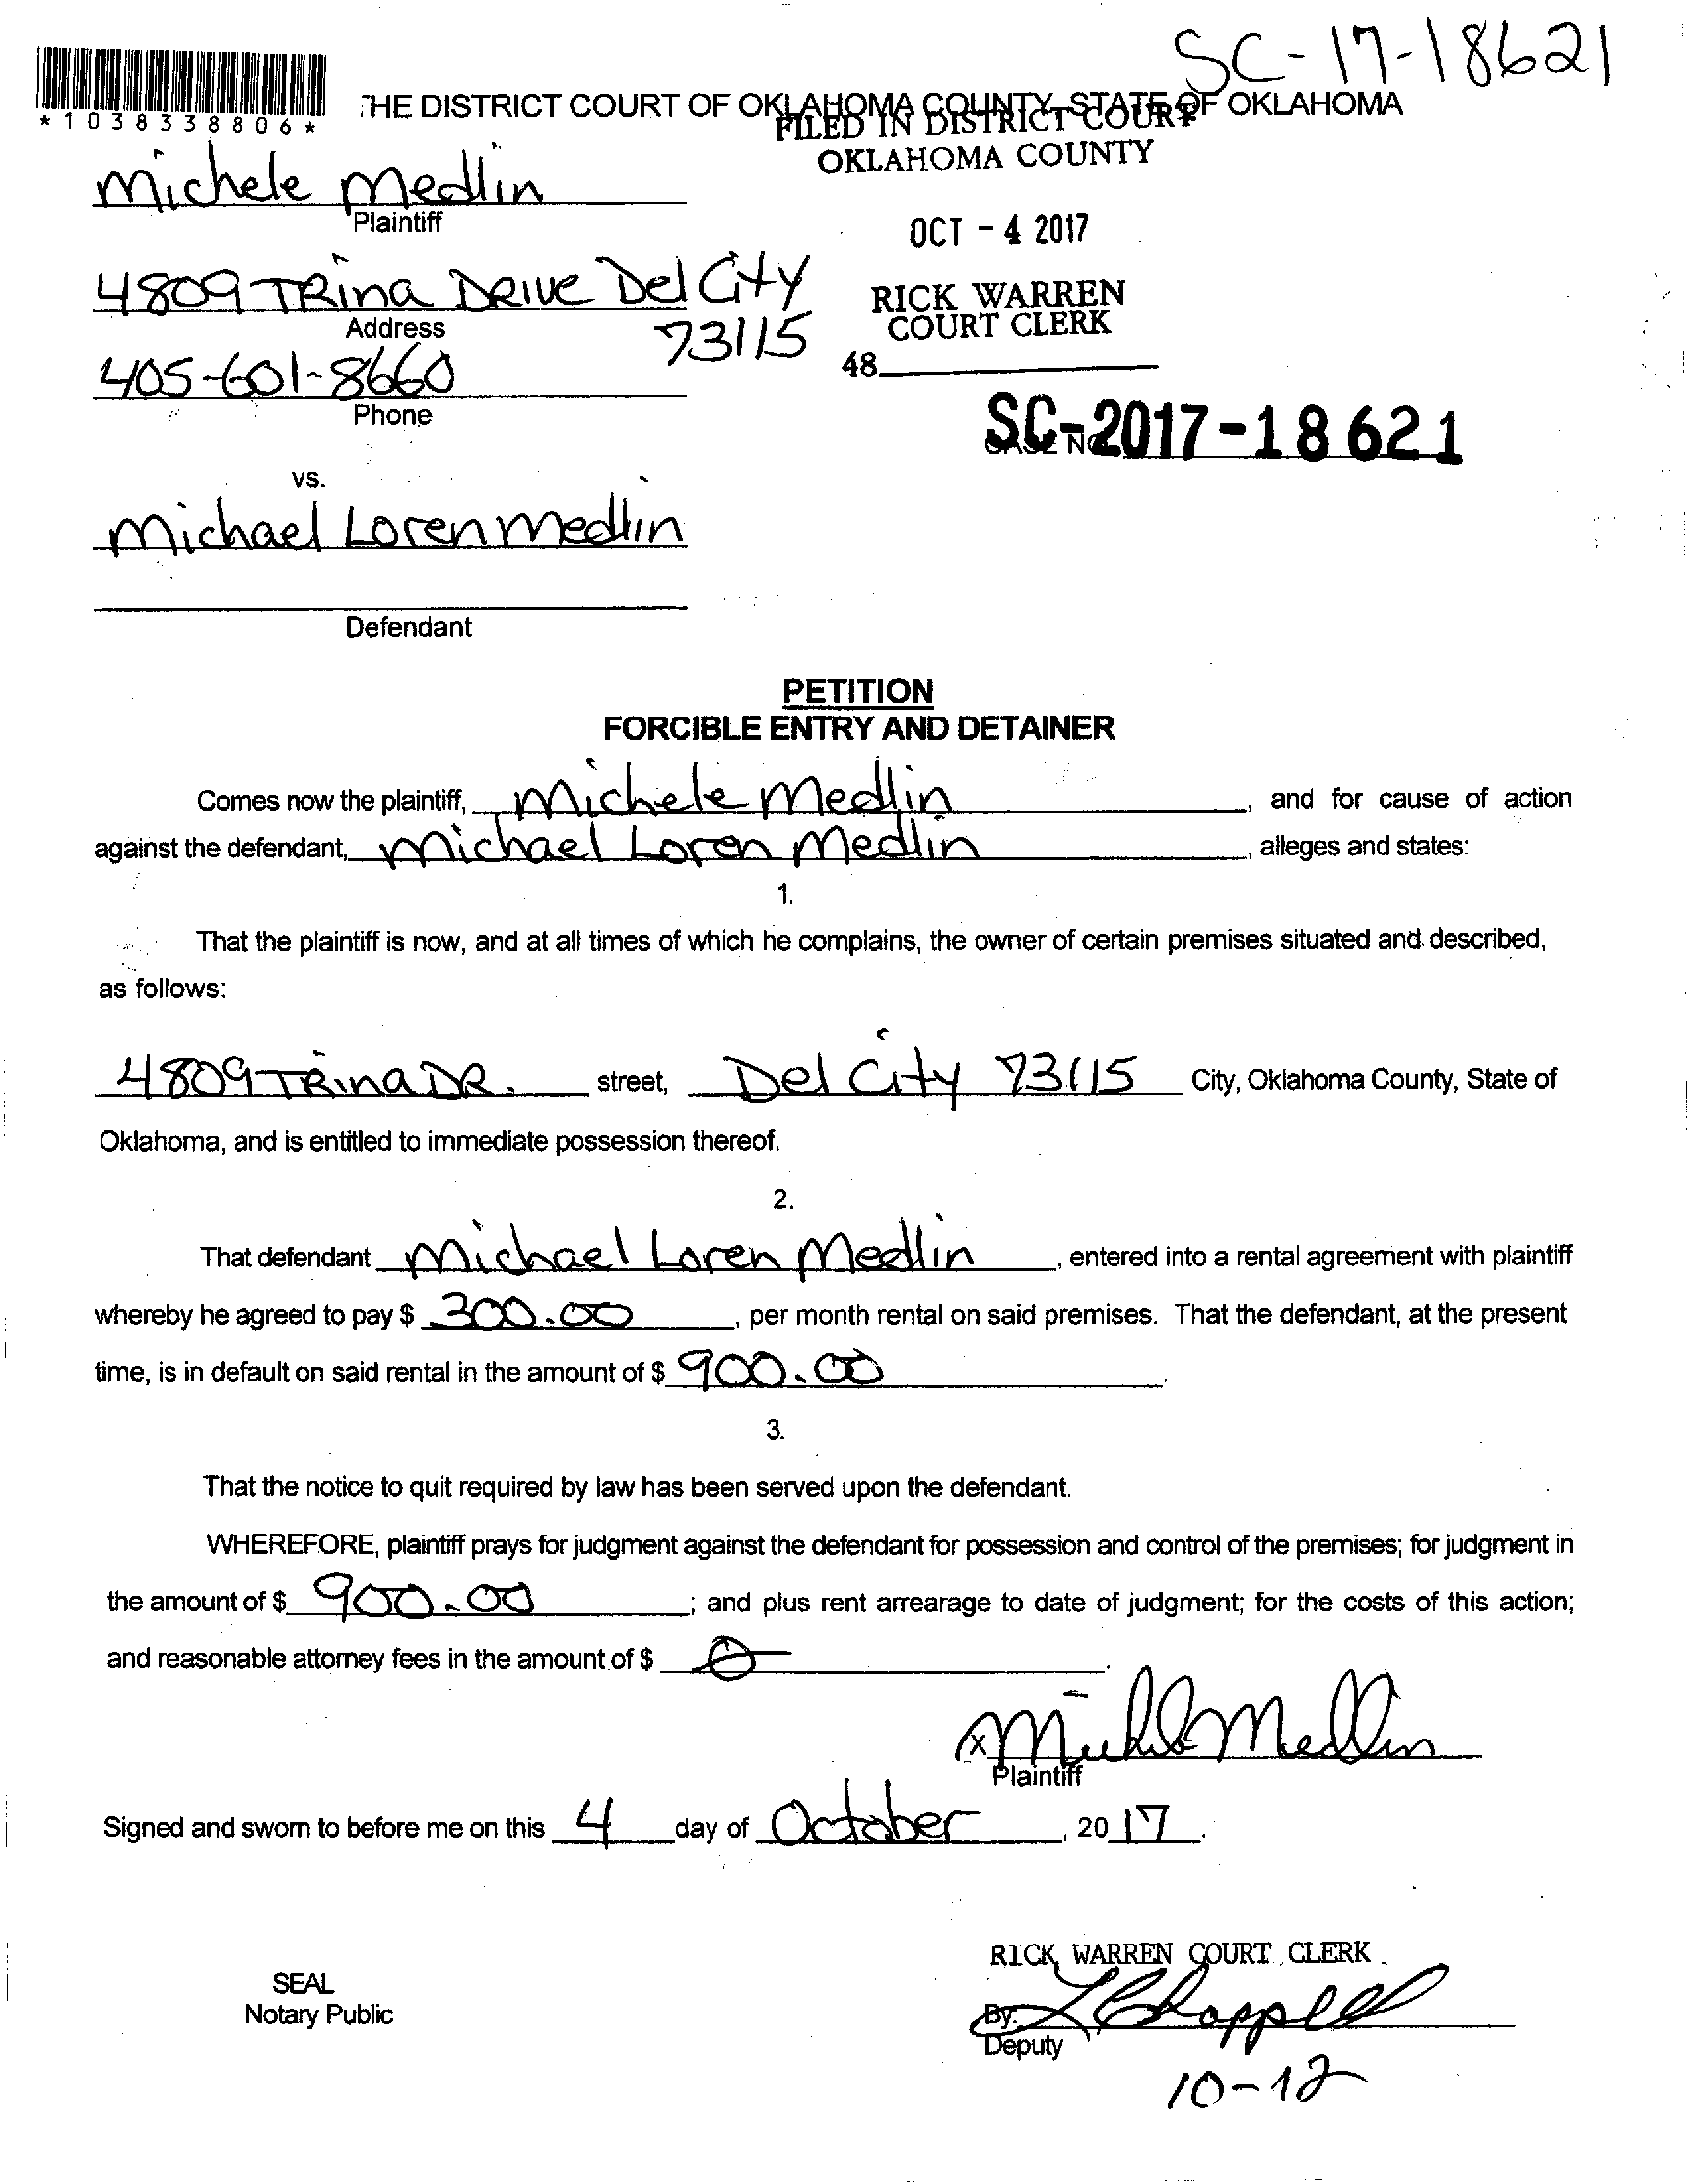 SC-17-18621
*1038338806*
THE DISTRICT COURT OF OKLAHOMA COUNTY, STATE OF OKLAHOMA
FILED IN DISTRICT COURT
OKLAHOMA COUNTY
Michele Medlin
Plaintiff
OCT - 4 2017
4809 TRina DRive Del City
RICK WARREN
COURT CLERK
Address
73115
405-601-8660
48
Phone
SC-2017-18621
CASE NO.
vs.
Michael Loren Medlin
Defendant
PETITION
FORCIBLE ENTRY AND DETAINER
Comes now the plaintiff, Michele Medlin, and for cause of action
against the defendant, Michael Loren Medlin, alleges and states:
1.
That the plaintiff is now, and at all times of which he complains, the owner of certain premises situated and described,
as follows:
4809 TRina DR. street, Del City 73115 City, Oklahoma County, State of
Oklahoma, and is entitled to immediate possession thereof.
2.
That defendant Michael Loren Medlin, entered into a rental agreement with plaintiff
whereby he agreed to pay $ 300.00, per month rental on said premises. That the defendant, at the present
time, is in default on said rental in the amount of $ 900.00.
3.
That the notice to quit required by law has been served upon the defendant.
WHEREFORE, plaintiff prays for judgment against the defendant for possession and control of the premises; for judgment in
the amount of $ 900.00; and plus rent arrearage to date of judgment; for the costs of this action;
and reasonable attorney fees in the amount of $ 0.
x Michele Medlin
Plaintiff
Signed and sworn to before me on this 4 day of October, 2017.
RICK WARREN COURT CLERK
SEAL
Notary Public
By: L Chappell
Deputy
10-12